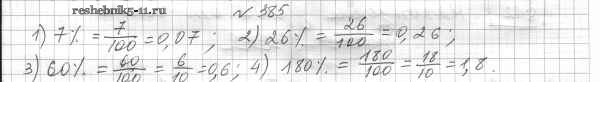 reshebnik5-11.ru № 385
1) 7% = 7/100 = 0,07 ; 2) 26% = 26/100 = 0,26 ;
3) 60% = 60/100 = 6/10 = 0,6 ; 4) 180% = 180/100 = 18/10 = 1,8 .